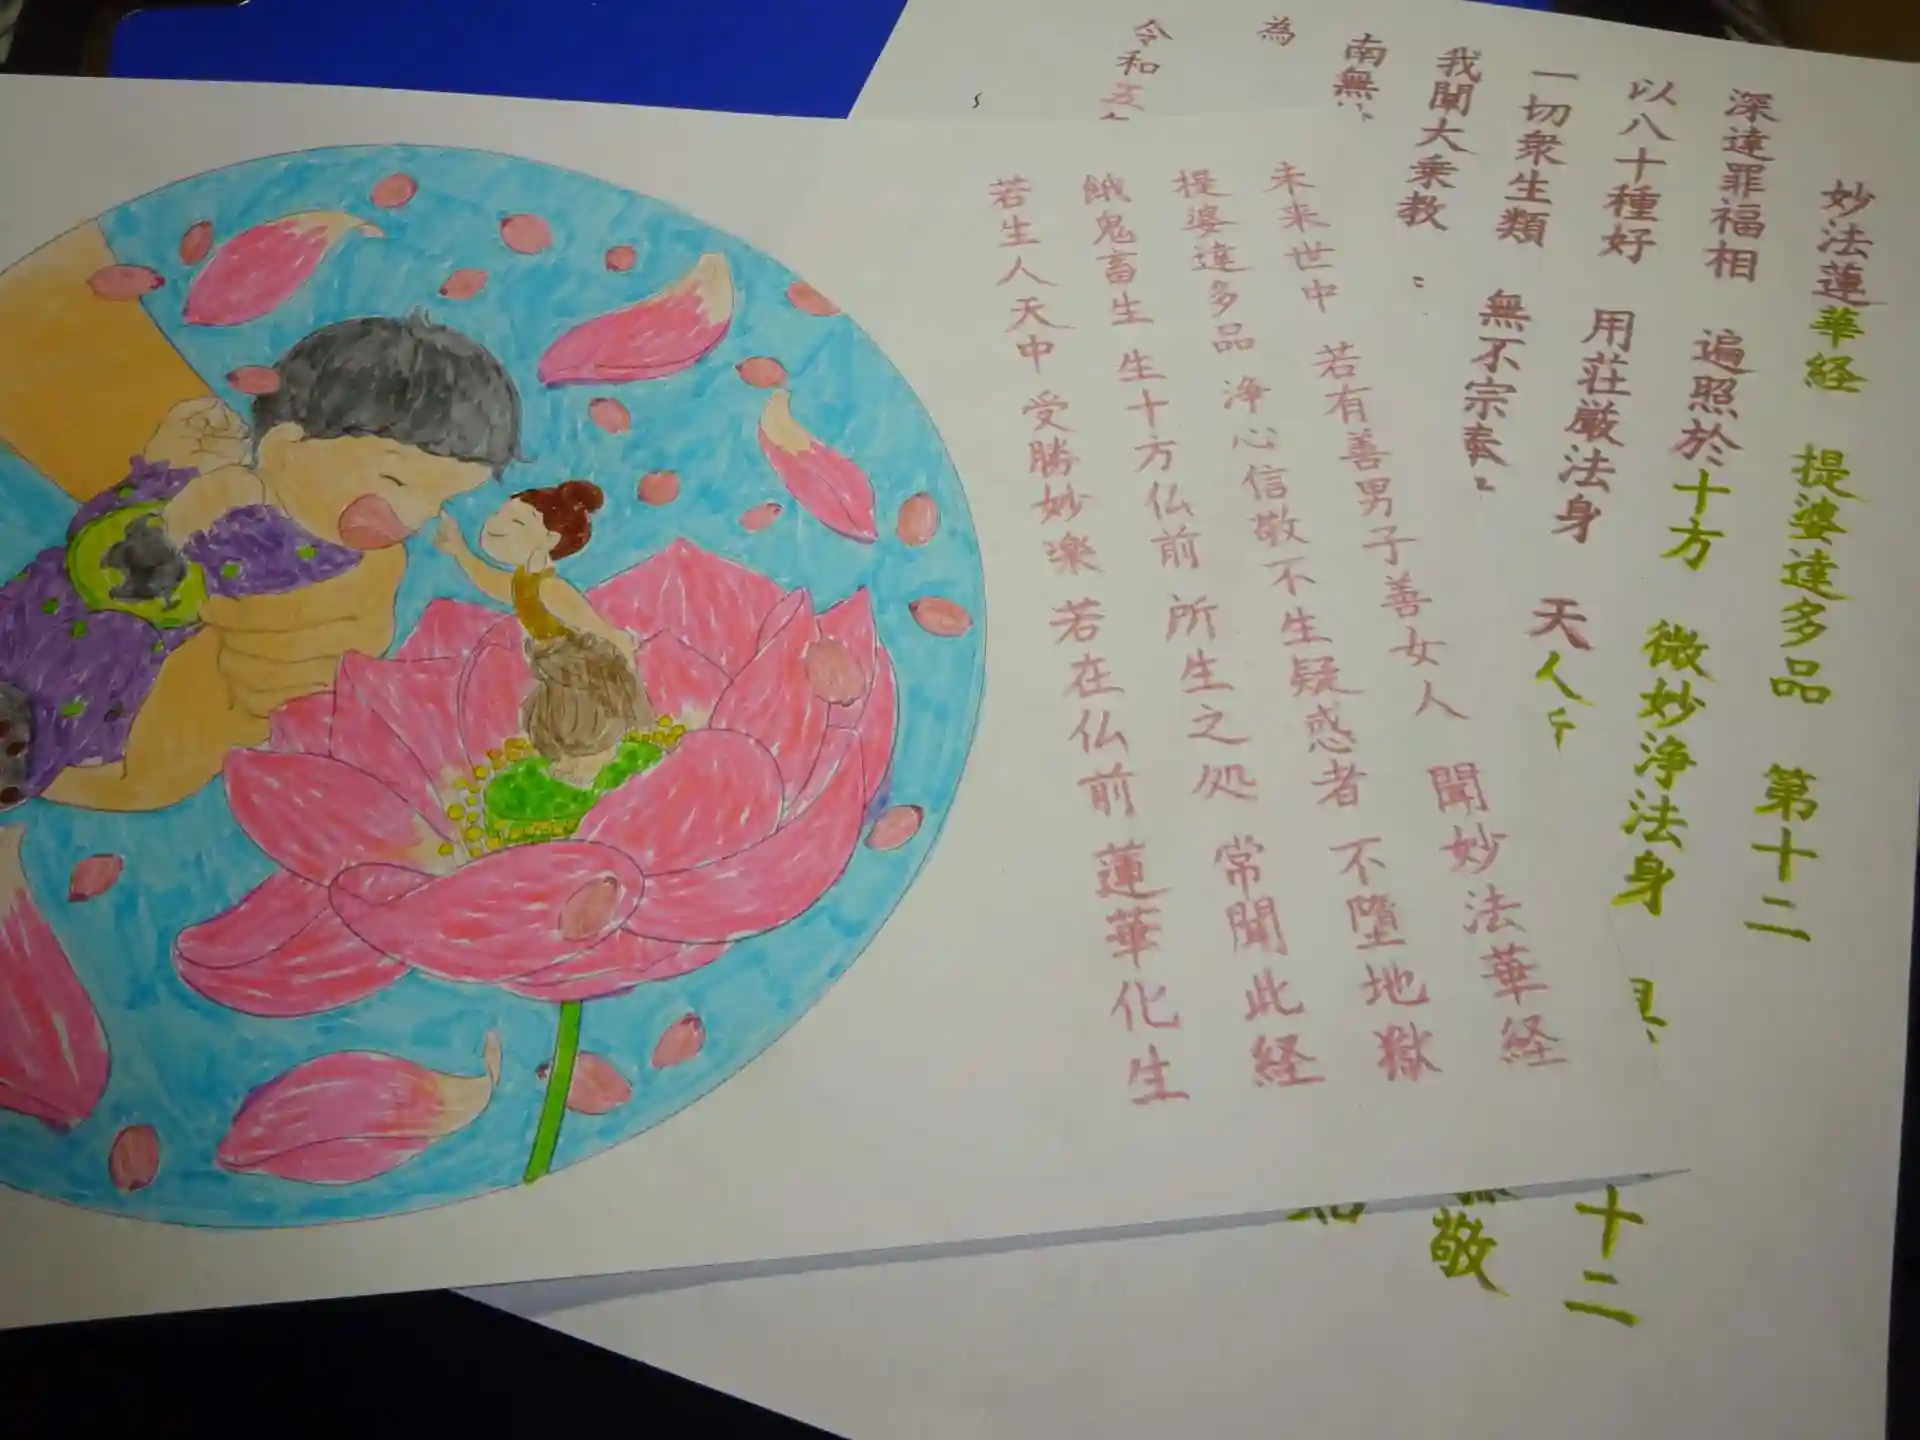 妙法蓮華経 提婆達多品 第十二
深達罪福相 遍照於十方 微妙浄法身
以八十種好 用荘厳法身 天人
一切衆生類 無不宗奉
我闡大乗教
南無
為
令和五
未来世中 若有善男子善女人 聞妙法華経
提婆達多品 浄心信敬不生疑惑者 不墮地獄
餓鬼畜生 生十方仏前 所生之処 常聞此経
若生人天中 受勝妙楽 若在仏前 蓮華化生
十二
敬